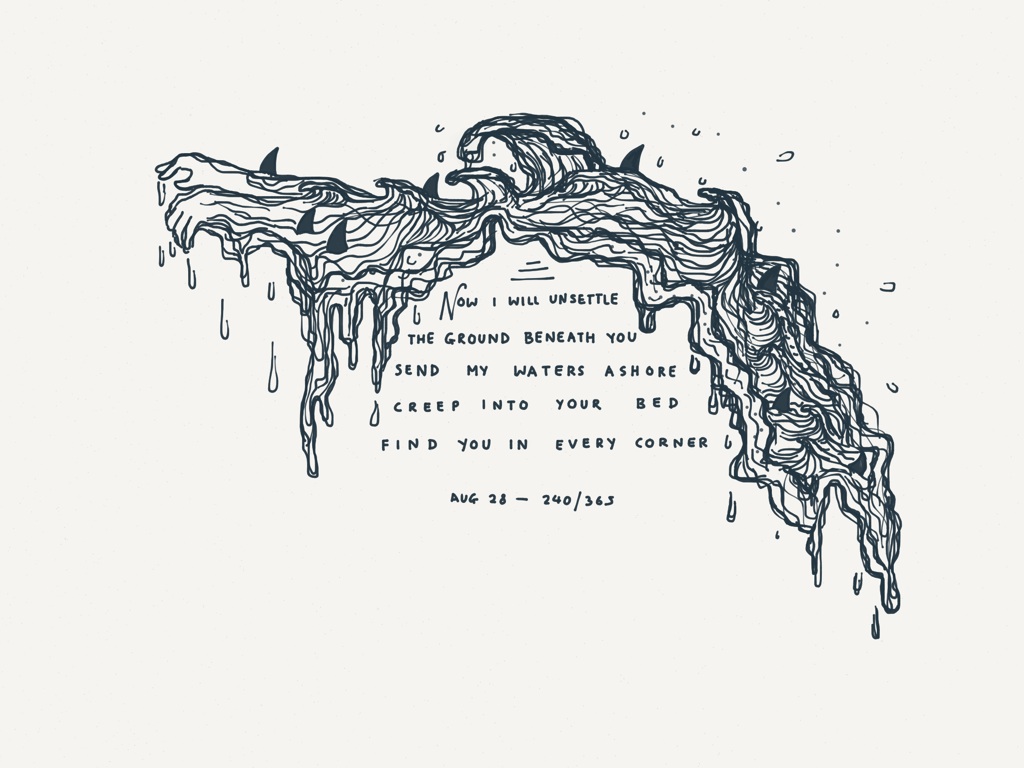 NOW I WILL UNSETTLE
THE GROUND BENEATH YOU
SEND MY WATERS ASHORE
CREEP INTO YOUR BED
FIND YOU IN EVERY CORNER
AUG 28 — 240/365